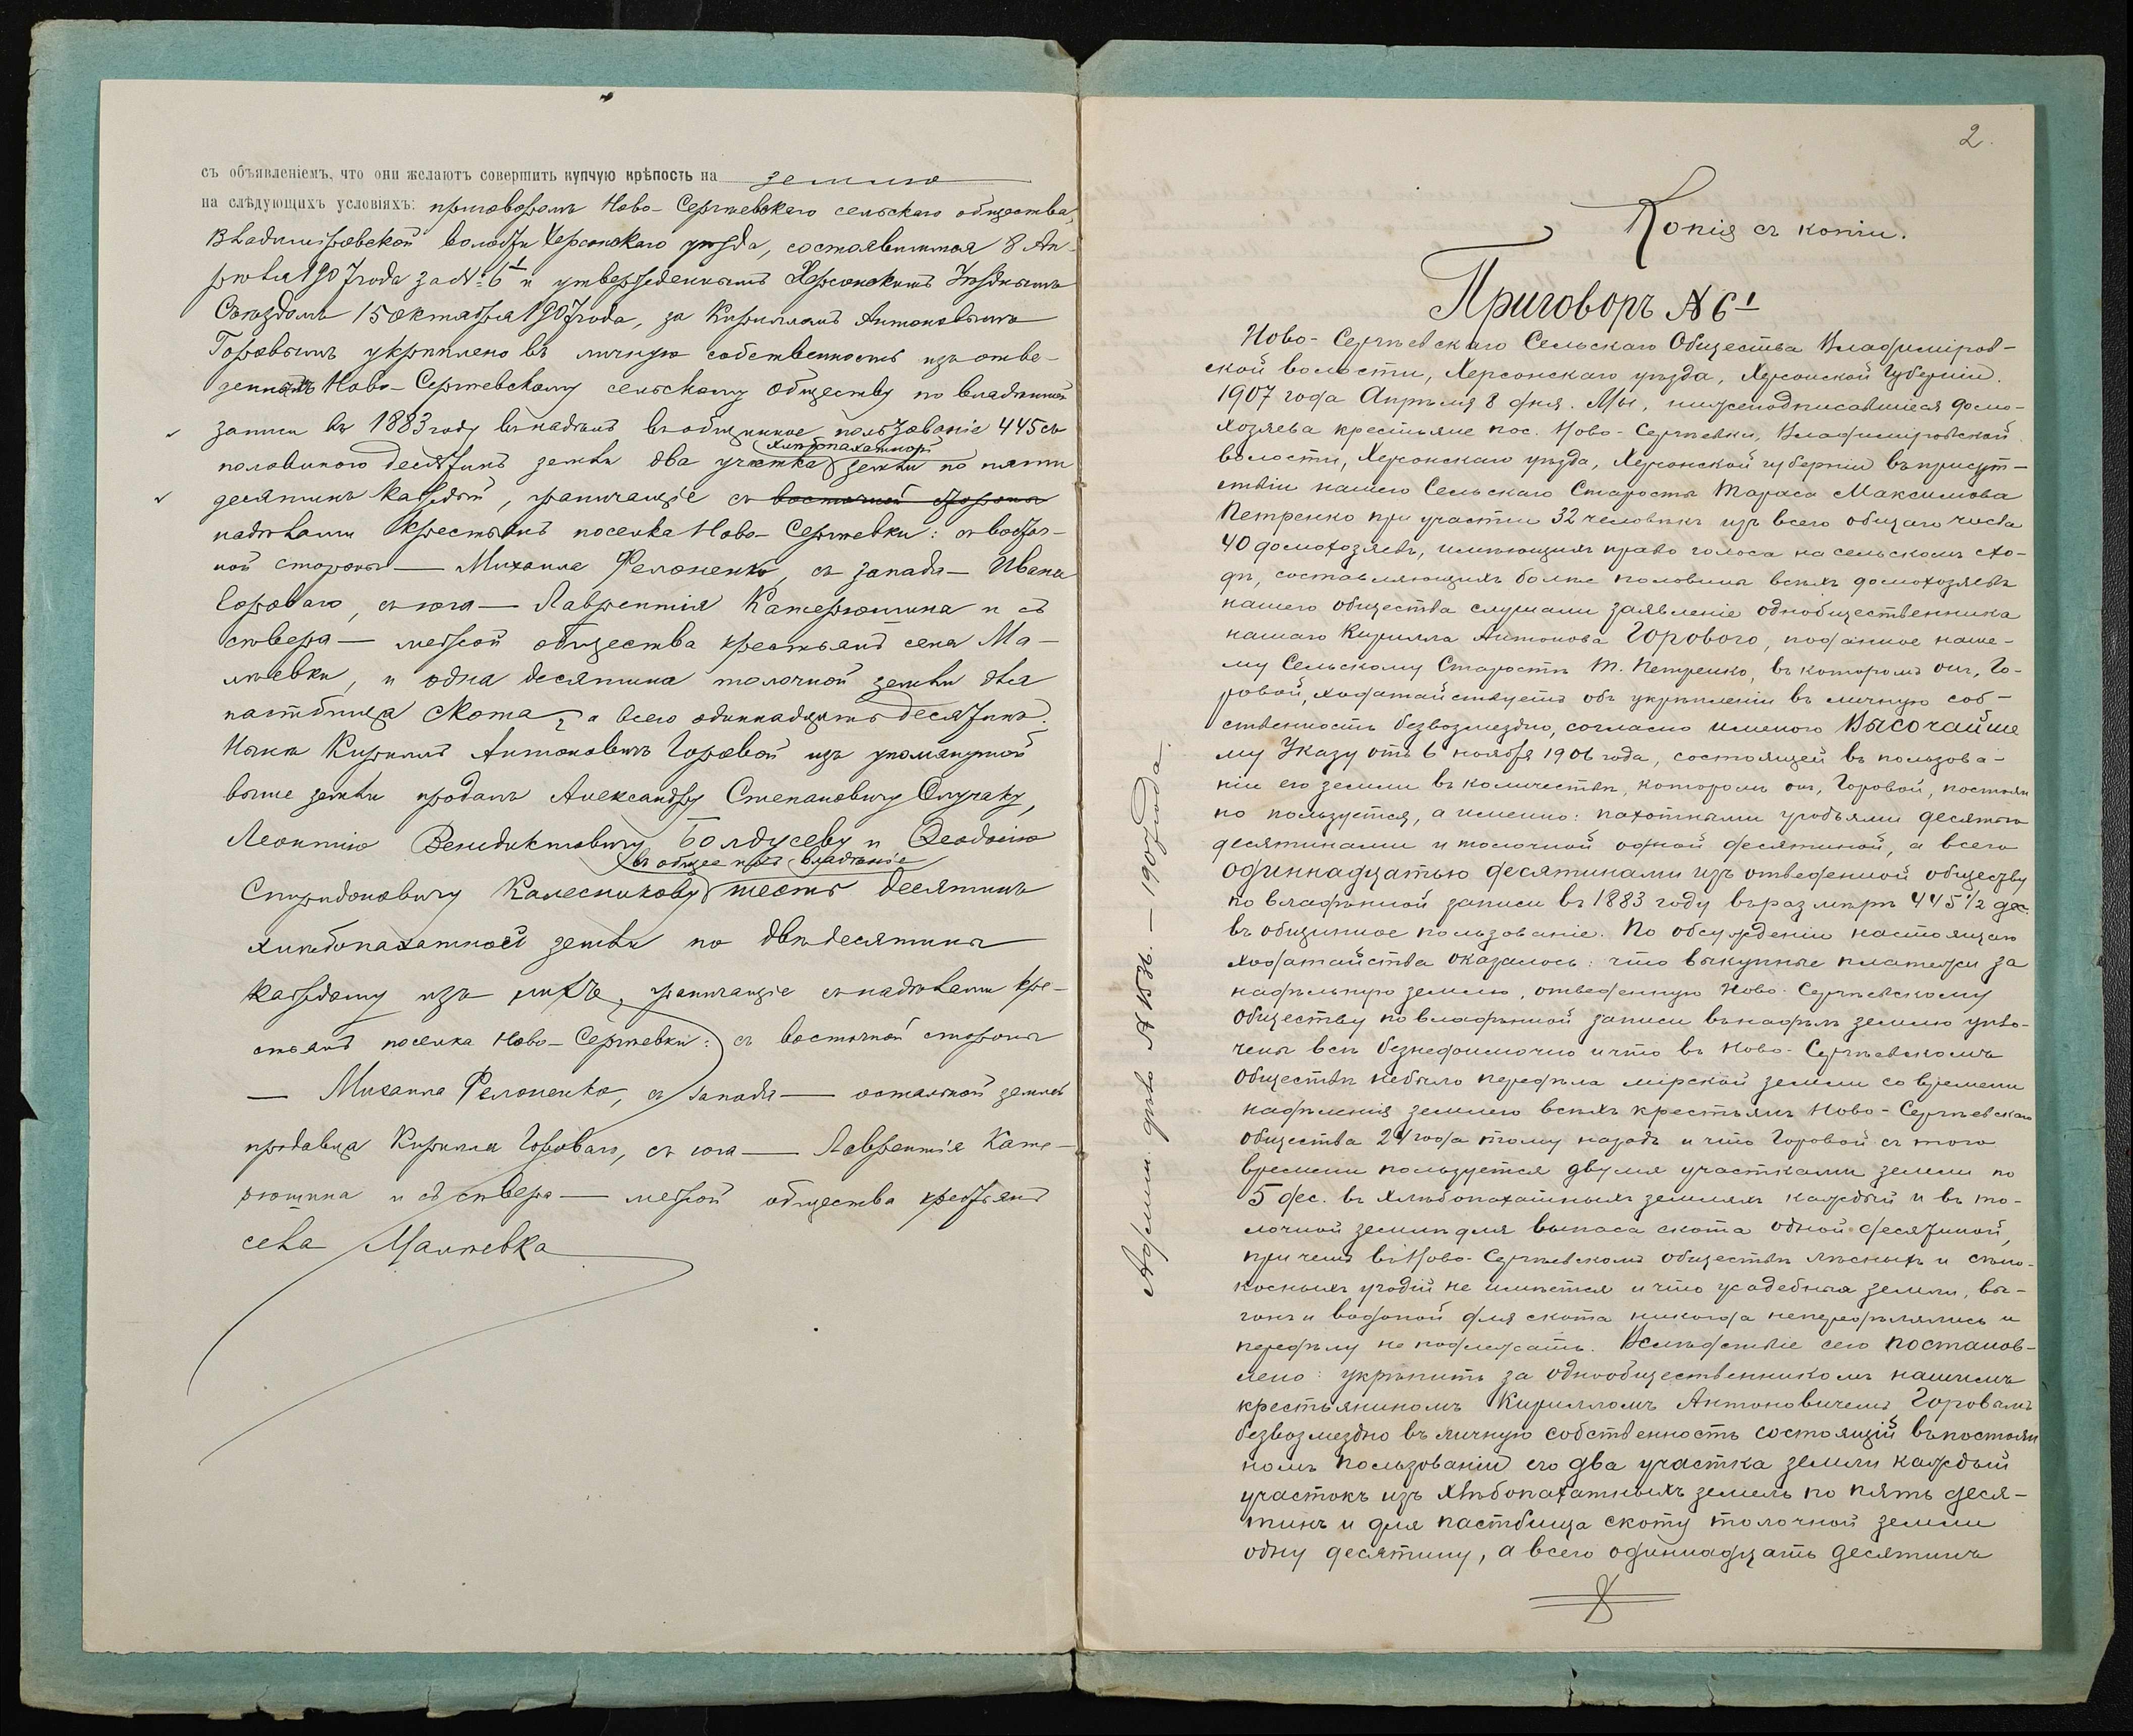 съ объявленіемъ, что они желаютъ совершить купчую крѣпость на землю
на слѣдующихъ условіяхъ: приговоромъ Ново-Сергѣевскаго сельскаго общества,
Владиміровской волости Херсонскаго уѣзда, состоявшимся 8 Ап-
рѣля 1907 года за № 6¹ и утвержденнымъ Херсонскимъ Уѣзднымъ
Съѣздомъ 15 октября 1907 года, за Кирилломъ Антоновымъ
Горовымъ укрѣплено въ личную собственность изъ отве-
денныхъ Ново-Сергѣевскому сельскому обществу по владѣнной
записи въ 1883 году въ надѣлъ въ общинное пользованіе 445 съ
половиною десятинъ земли два участка хлѣбопахатной земли по пяти
десятинъ каждый, граничащіе съ восточной стороны
надѣлами крестьянъ поселка Ново-Сергѣевки: съ восточ-
ной стороны — Михаила Филоненко, съ запада — Ивана
Горового, съ юга — Лаврентія Катерюшина и съ
сѣвера — межой общества крестьянъ села Ма-
лѣевки, и одна десятина толочной земли для
пастбища скота, а всего одиннадцать десятинъ.
Нынѣ Кириллъ Антоновичъ Горовой изъ упомянутой
выше земли продалъ Александру Степановичу Слугаку,
Леонтію Венидиктовичу Болдусеву и Ѳеодосію
Спиридоновичу Калесникову въ общее владѣніе шесть десятинъ
хлѣбопахатной земли по двѣ десятины
каждому изъ нихъ, граничащіе съ надѣлами кре-
стьянъ поселка Ново-Сергѣевки: съ восточной стороны
— Михаила Филоненко, съ запада — остальной землей
продавца Кирилла Горового, съ юга — Лаврентія Кате-
рюшина и съ сѣвера — межой общества крестьянъ
села Малѣевка
2.
Копія съ копіи.
Приговоръ № 6¹
Ново-Сергѣевскаго Сельскаго Общества Владиміров-
ской волости, Херсонскаго уѣзда, Херсонской Губерніи.
1907 года Апрѣля 8 дня. Мы, нижеподписавшіеся домо-
хозяева крестьяне пос. Ново-Сергѣевки, Владиміровской
волости, Херсонскаго уѣзда, Херсонской губерніи въ присут-
ствіи нашего Сельскаго Старосты Тараса Максимова
Петренко при участіи 32 человѣкъ изъ всего общаго числа
40 домохозяевъ, имѣющихъ право голоса на сельскомъ схо-
дѣ, составляющихъ болѣе половины всѣхъ домохозяевъ
нашего общества слушали заявленіе однобщественника
нашаго Кирилла Антонова Горового, поданное наше-
му Сельскому Старостѣ Т. Петренко, въ которомъ онъ, Го-
ровой, ходатайствуетъ объ укрѣпленіи въ личную соб-
ственность безвозмездно, согласно именого Высочайше
му Указу отъ 6 ноября 1906 года, состоящей въ пользова-
ніи его земли въ количествѣ, которомъ онъ, Горовой, постоян
но пользуется, а именно: пахотными угодьями десятью
десятинами и толочной одной десятиной, а всего
одиннадцатью десятинами изъ отведенной обществу
по владѣнной записи въ 1883 году въ размѣрѣ 445 1/2 дес.
въ общинное пользованіе. По обсужденіи настоящаго
ходатайства оказалось: что выкупные платежи за
надѣльную землю, отведенную Ново-Сергѣевскому
Обществу по владѣнной записи въ надѣлъ землю упло-
чены всѣ безнедоимочно и что въ Ново-Сергѣевскомъ
Обществѣ небыло передѣла мірской земли со времени
надѣленія землею всѣхъ крестьянъ Ново-Сергѣевскаго
Общества 24 года тому назадъ и что Горовой съ того
времени пользуется двумя участками земли по
5 дес. въ хлѣбопахатныхъ земляхъ каждый и въ то-
лочной земли для выпаса скота одной десятиной,
при чемъ въ Ново-Сергѣевскомъ обществѣ лѣсныхъ и сѣно-
косныхъ угодій не имѣется и что усадебныя земли, вы-
гонъ и водопой для скота никогда непередѣлялись и
передѣлу не подлежатъ. Вслѣдствіе сего постанов-
лено: укрѣпить за однообщественникомъ нашимъ
крестьяниномъ Кирилломъ Антоновичемъ Горовымъ
безвозмездно въ личную собственность состоящій въ постоян
номъ пользованіи его два участка земли каждый
участокъ изъ хлѣбопахатныхъ земель по пять деся-
тинъ и для пастбища скоту толочной земли
одну десятину, а всего одиннадцать десятинъ